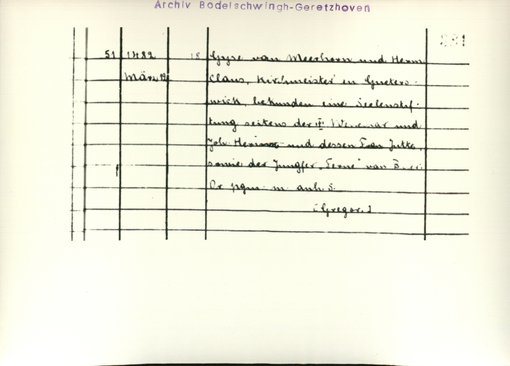 Archiv Bodelschwingh-Geretzhoven
51 1482 Gyse van Meerhorn und Herm
März Claus, Kirchmeister en Gueters-
wick, bekunden eine Seelenstif-
tung seitens der und
Joh. und dessen Frau Jutta,
sowie der Jungfer "Ferne" van
Or. pgm. m. anh. S.
(Gregor.)